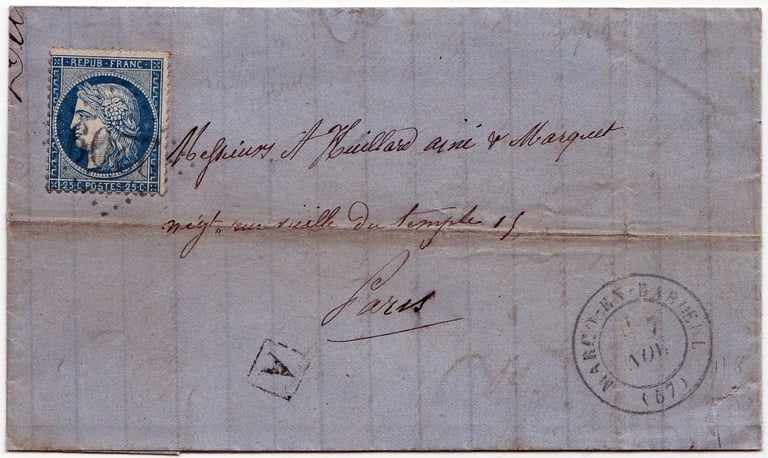 REPUB · FRANC ·
25 · C · POSTES · 25 · C ·
Messieurs A Huillard ainé & Marquet
négt" rue vieille du temple 15
Paris
A
MARCQ-EN-BAROEUL
7
NOV
(57)